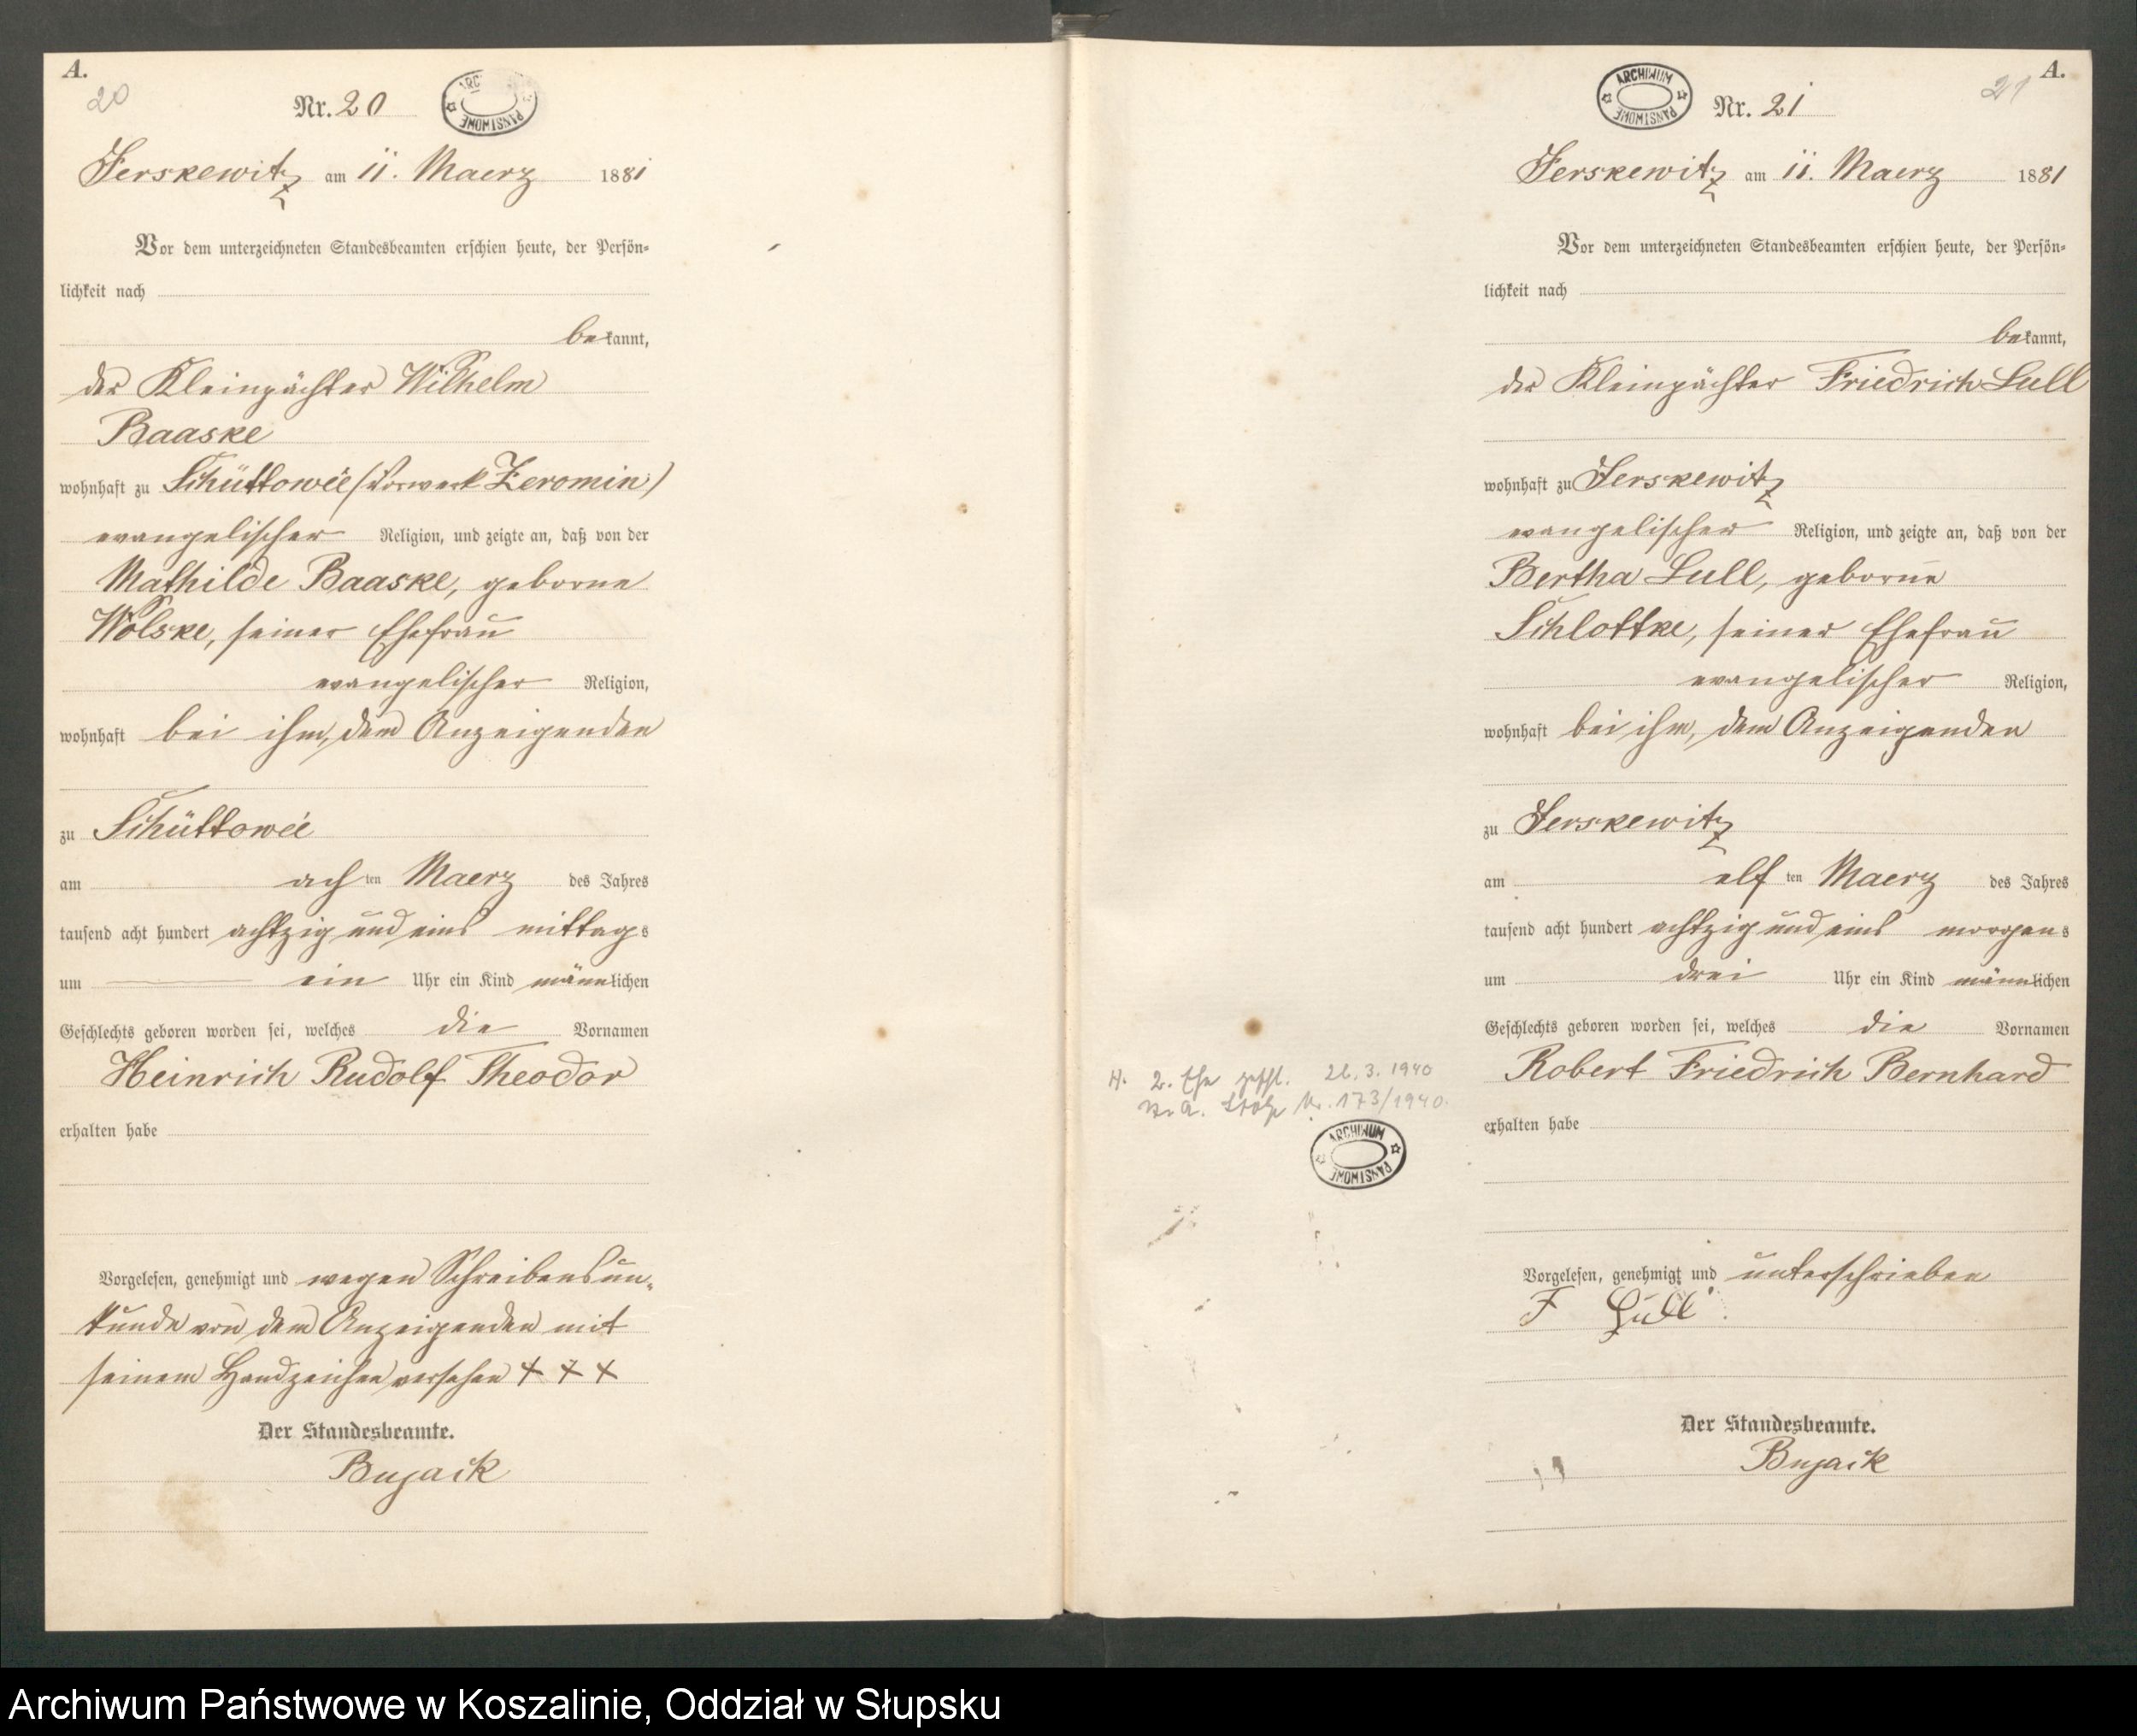 A.
20
Nr. 20
ARC
PANSTWOWE
Jerskewitz am 11. Maerz 1881
Vor dem unterzeichneten Standesbeamten erschien heute, der Persön-
lichkeit nach
bekannt,
der Kleinpächter Wilhelm
Baaske
wohnhaft zu Schüttowée (Vorwerk Zeromin)
evangelischer Religion, und zeigte an, daß von der
Mathilde Baaske, geborne
Wolske, seiner Ehefrau
evangelischer Religion,
wohnhaft bei ihm, dem Anzeigenden
zu Schüttowée
am achten Maerz des Jahres
tausend acht hundert achtzig und eins mittags
um ein Uhr ein Kind männlichen
Geschlechts geboren worden sei, welches die Vornamen
Heinrich Rudolf Theodor
erhalten habe
Vorgelesen, genehmigt und wegen Schreibensun-
kunde von dem Anzeigenden mit
seinem Handzeichen versehen + + +
Der Standesbeamte.
Bujack
A.
21
ARCHIWUM
PANSTWOWE
Nr. 21
Jerskewitz am 11. Maerz 1881
Vor dem unterzeichneten Standesbeamten erschien heute, der Persön-
lichkeit nach
bekannt,
der Kleinpächter Friedrich Lull
wohnhaft zu Jerskewitz
evangelischer Religion, und zeigte an, daß von der
Bertha Lull, geborne
Schlottke, seiner Ehefrau
evangelischer Religion,
wohnhaft bei ihm, dem Anzeigenden
zu Jerskewitz
am elften Maerz des Jahres
tausend acht hundert achtzig und eins morgens
um drei Uhr ein Kind männlichen
Geschlechts geboren worden sei, welches die Vornamen
Robert Friedrich Bernhard
erhalten habe
H. 2. Ehe geschl. 26.3.1940
St. A. Stolp Nr. 173/1940.
ARCHIWUM
PANSTWOWE
Vorgelesen, genehmigt und unterschrieben
F Lull
Der Standesbeamte.
Bujack
Archiwum Państwowe w Koszalinie, Oddział w Słupsku